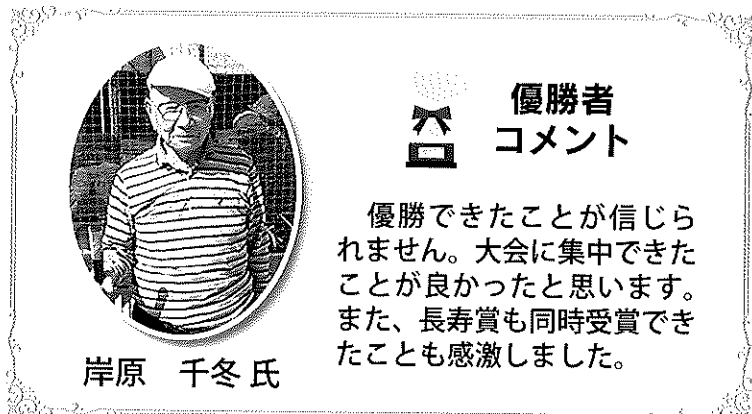 優勝者
コメント
　優勝できたことが信じら
れません。大会に集中できた
ことが良かったと思います。
また、長寿賞も同時受賞でき
たことも感激しました。
岸原　千冬 氏